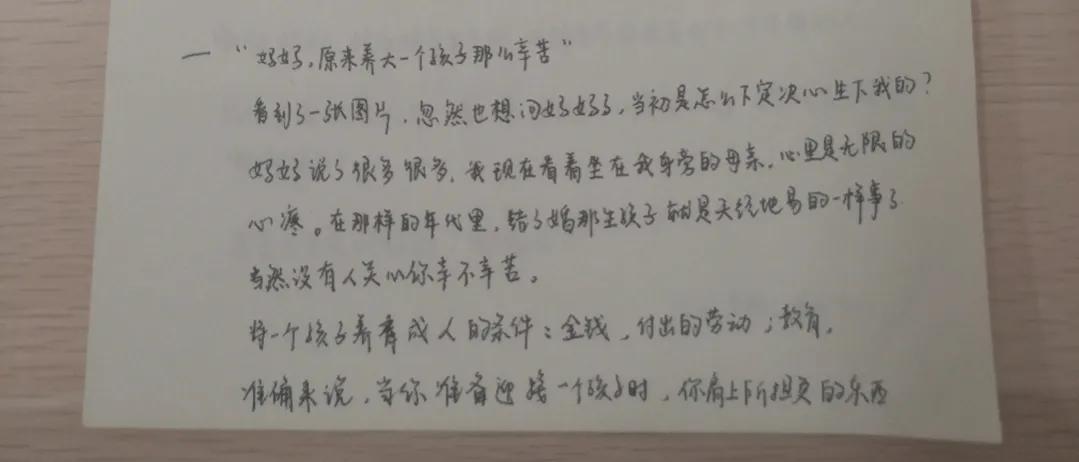 一 “妈妈,原来养大一个孩子那么辛苦”
看到了一张图片,忽然也想问妈妈,当初是怎么下定决心生下我的?
妈妈说了很多很多,我现在看着坐在我身旁的母亲,心里是无限的
心疼。在那样的年代里,结了婚那生孩子就是天经地易的一样事了
当然没有人关心你辛不辛苦。
将一个孩子养育成人的条件:金钱,付出的劳动;教育,
准确来说,当你准备迎接一个孩子时,你肩上所担负的东西